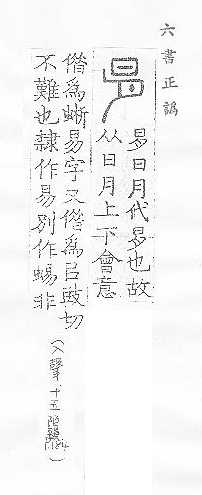 六書正譌
易
易日月代易也故
从日月上下會意
借為蜥易字又借為㠯豉切
不難也隸作易別作蜴非
(入聲十五陌